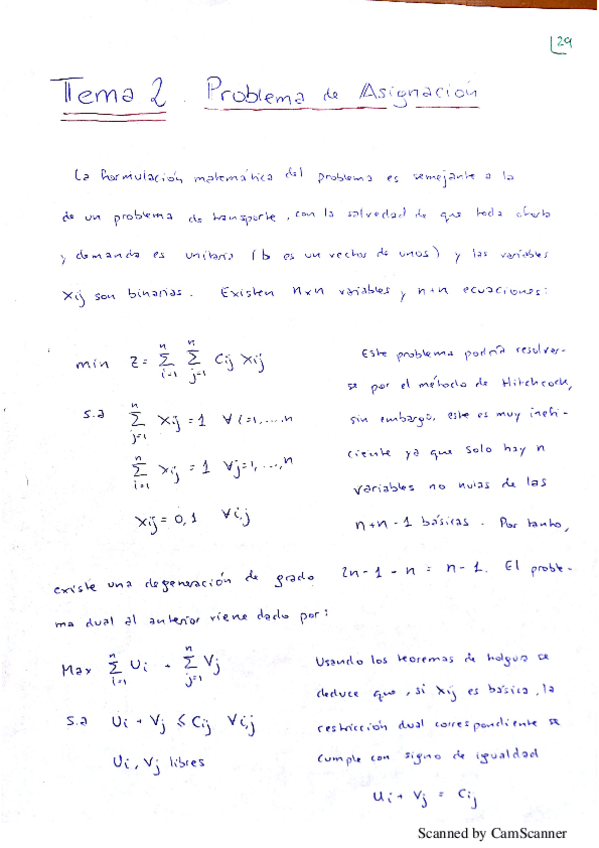 29
Tema 2. Problema de Asignación
La formulación matemática del problema es semejante a la
de un problema de transporte, con la salvedad de que toda oferta
y demanda es unitaria (b es un vector de unos) y las variables
Xij son binarias. Existen n×n variables y n+n ecuaciones:
min Z = ∑_{i=1}^{n} ∑_{j=1}^{n} Cij Xij
s.a ∑_{j=1}^{n} Xij = 1 ∀ i=1,...,n
∑_{i=1}^{n} Xij = 1 ∀ j=1,...,n
Xij = 0,1 ∀ i,j
Este problema podría resolver-
se por el método de Hitchcock,
sin embargo, este es muy inefi-
ciente ya que solo hay n
variables no nulas de las
n+n-1 básicas. Por tanto,
existe una degeneración de grado 2n-1-n = n-1. El proble-
ma dual al anterior viene dado por:
Max ∑_{i=1}^{n} Ui + ∑_{j=1}^{n} Vj
s.a Ui + Vj ≤ Cij ∀ i,j
Ui, Vj libres
Usando los teoremas de holgura se
deduce que, si Xij es básica, la
restricción dual correspondiente se
cumple con signo de igualdad
Ui + Vj = Cij
Scanned by CamScanner